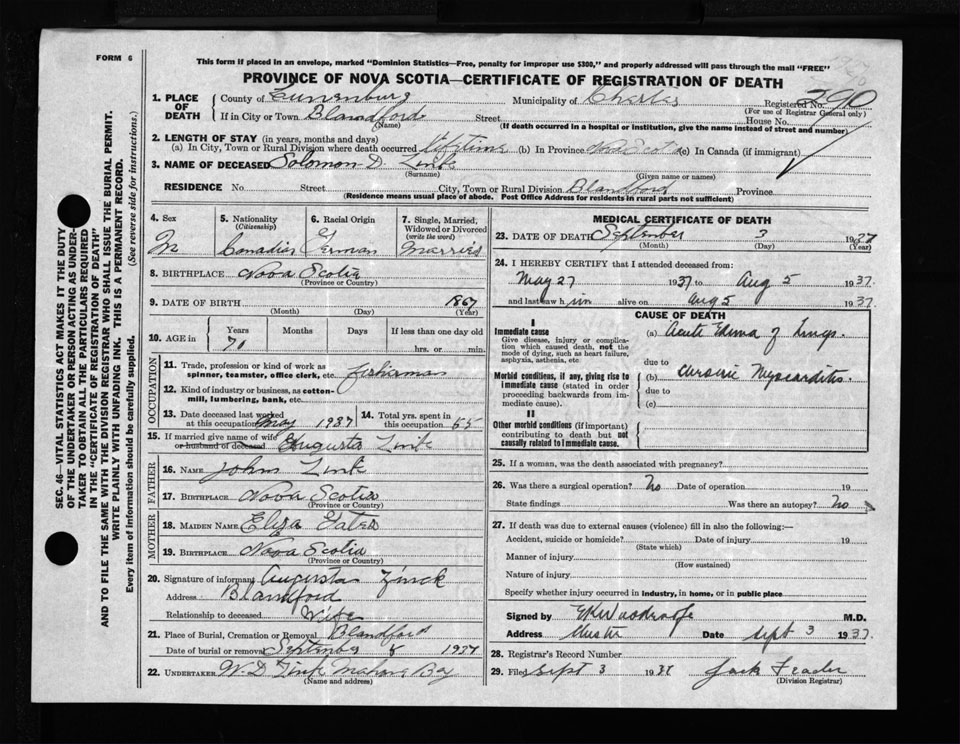 FORM 6
This form if placed in an envelope, marked "Dominion Statistics—Free, penalty for improper use $300," and properly addressed will pass through the mail "FREE"
PROVINCE OF NOVA SCOTIA—CERTIFICATE OF REGISTRATION OF DEATH
SEC. 46—VITAL STATISTICS ACT MAKES IT THE DUTY
OF THE UNDERTAKER OR PERSON ACTING AS UNDER-
TAKER TO OBTAIN ALL THE PARTICULARS REQUIRED
IN THE "CERTIFICATE OF REGISTRATION OF DEATH"
AND TO FILE THE SAME WITH THE DIVISION REGISTRAR WHO SHALL ISSUE THE BURIAL PERMIT.
WRITE PLAINLY WITH UNFADING INK. THIS IS A PERMANENT RECORD.
Every item of information should be carefully supplied. (See reverse side for instructions.)
1. PLACE OF DEATH County of Lunenburg Municipality of Chester Registered No. 790
(For use of Registrar General only)
If in City or Town Blandford Street House No.
(Name) (If death occurred in a hospital or institution, give the name instead of street and number)
2. LENGTH OF STAY (in years, months and days)
(a) In City, Town or Rural Division where death occurred lifetime (b) In Province Nova Scotia (c) In Canada (if immigrant)
3. NAME OF DECEASED Solomon D. Zink
(Surname) (Given name or names)
RESIDENCE No Street City, Town or Rural Division Blandford Province
(Residence means usual place of abode. Post Office Address for residents in rural parts not sufficient)
4. Sex M
5. Nationality (Citizenship) Canadian
6. Racial Origin German
7. Single, Married, Widowed or Divorced (write the word) Married
8. BIRTHPLACE Nova Scotia
(Province or Country)
9. DATE OF BIRTH 1867
(Month) (Day) (Year)
10. AGE in Years 70 Months Days If less than one day old hrs. or min.
OCCUPATION
11. Trade, profession or kind of work as spinner, teamster, office clerk, etc. fisherman
12. Kind of industry or business, as cotton-mill, lumbering, bank, etc.
13. Date deceased last worked at this occupation May 1937
14. Total yrs. spent in this occupation 55
15. If married give name of wife or husband of deceased Augusta Zink
FATHER
16. NAME John Zink
17. BIRTHPLACE Nova Scotia
(Province or Country)
MOTHER
18. MAIDEN NAME Eliza
19. BIRTHPLACE Nova Scotia
(Province or Country)
20. Signature of informant Augusta Zinck
Address Blandford
Relationship to deceased Wife
21. Place of Burial, Cremation or Removal Blandford
Date of burial or removal September 1937
22. UNDERTAKER W. D. Zink Mahone Bay
(Name and address)
MEDICAL CERTIFICATE OF DEATH
23. DATE OF DEATH September 3 1937
(Month) (Day) (Year)
24. I HEREBY CERTIFY that I attended deceased from:
May 27 1937 to Aug 5 1937
and last saw him alive on Aug 5 1937
CAUSE OF DEATH
I
Immediate cause
Give disease, injury or complication which caused death, not the mode of dying, such as heart failure, asphyxia, asthenia, etc
(a) Acute Edema of Lungs.
due to
Morbid conditions, if any, giving rise to immediate cause (stated in order proceeding backwards from immediate cause).
(b) Myocarditis.
due to
(c)
II
Other morbid conditions (if important) contributing to death but not causally related to immediate cause.
25. If a woman, was the death associated with pregnancy?
26. Was there a surgical operation? No Date of operation 19
State findings Was there an autopsy? No
27. If death was due to external causes (violence) fill in also the following:—
Accident, suicide or homicide? Date of injury 19
(State which)
Manner of injury
(How sustained)
Nature of injury
Specify whether injury occurred in industry, in home, or in public place
Signed by M.D.
Address Chester Date Sept 3 1937.
28. Registrar's Record Number
29. Filed Sept 3 193 Jack
(Division Registrar)